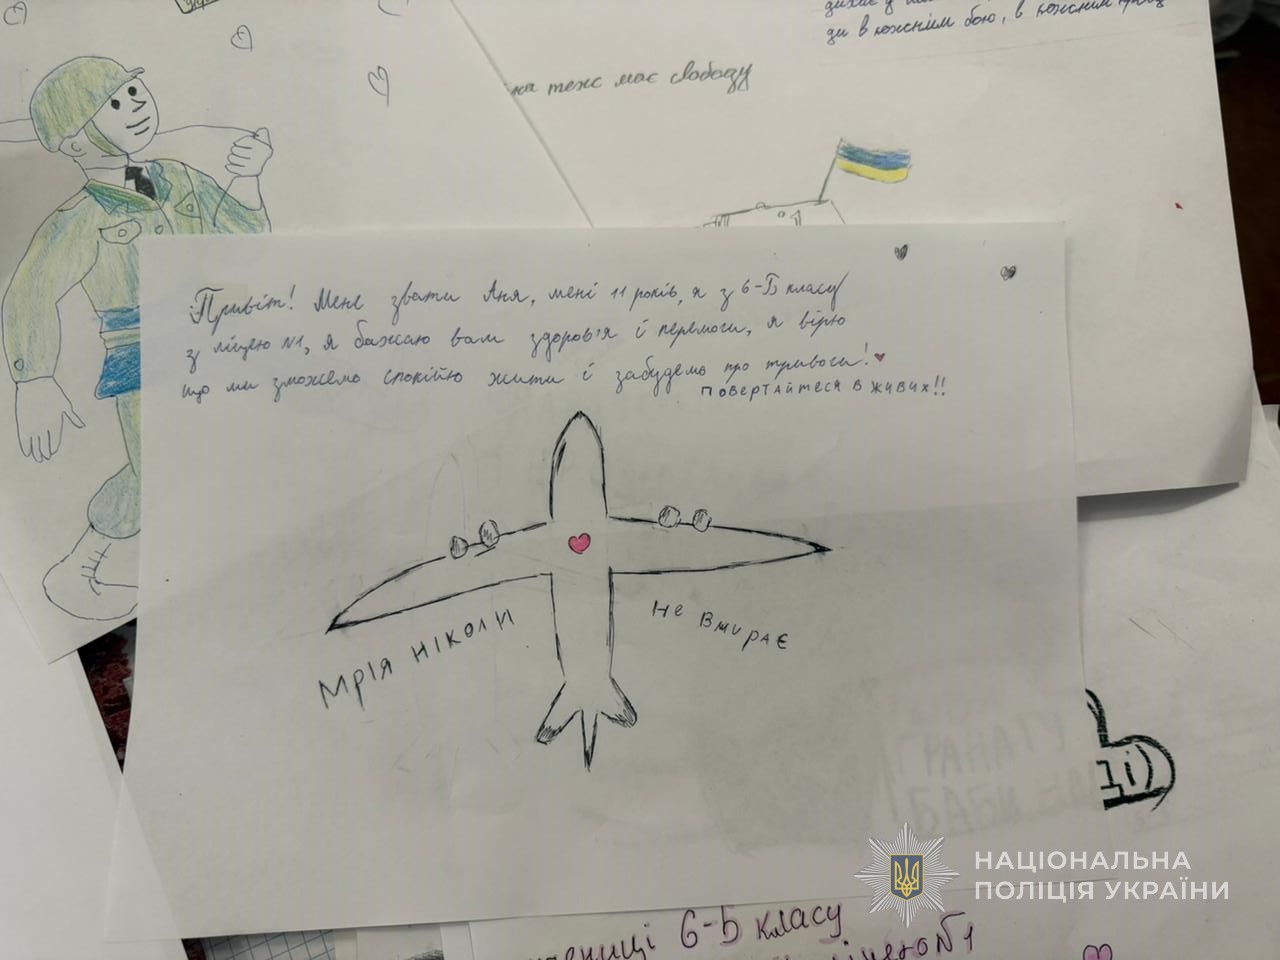 ди в кожнім бою, в кожнім
теж має свободу
Привіт! Мене звати Аня, мені 11 років, я з 6-Б класу
з ліцею №1, я бажаю вам здоров'я і перемоги, я вірю
що ми зможемо спокійно жити і забудемо про тривоги!
Повертайтеся в живих!!
Мрія ніколи
не вмирає
ГРАНАТУ
ді)
НАЦІОНАЛЬНА
ПОЛІЦІЯ УКРАЇНИ
6-Б класу
№1